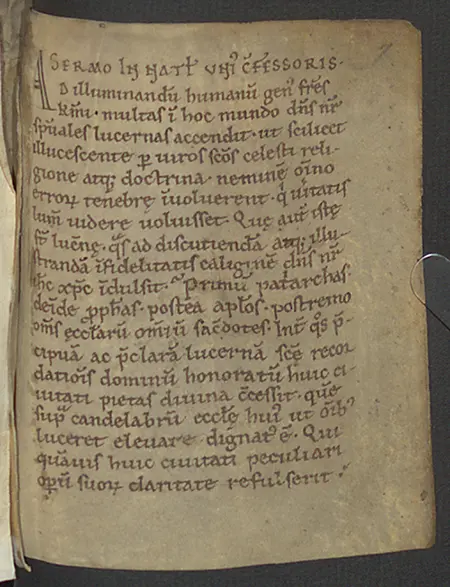 SERMO IN NATƚ VNIꝰ C̄FESSORIS·
AD illuminandū humanū genꝰ fr̄es
kr̄mi· multas ī hoc mundo dn̄s nr̄
sp̄uales lucernas accendit· ut scilicet
illucescente ꝑ uiros sc̄os celesti reli-
gione atq; doctrina· neminē om̄ino
errorꝝ tenebrę īuoluerent· qͥ uͥtatis
lum̄ uidere uoluisset· Quę aut̄ istę
st̄ lucn̄ę· qͣs ad discutiendā atq; illu-
strandā īfidelitatis caliginē dn̄s nr̄
ih̄c xp̄c īdulsit· Primū patͥarchas·
deīde ꝓph̄as· postea ap̄los· postremo
om̄s ęcclarū om̄iū sac̄dotes· Int̄ qͦs p̄-
cipuā ac p̄clarā lucernā scę̄ recor
dationis dominū honoratū huic ci-
uitati pietas diuina c̄cessit· quē
sup̄ candelabrū eccłę huiꝰ ut om̄ibꝰ
luceret eleuare dignatꝰ ē· Qui
quāuis huic ciuitati peculiari
oꝑū suoꝝ claritate refulserit·